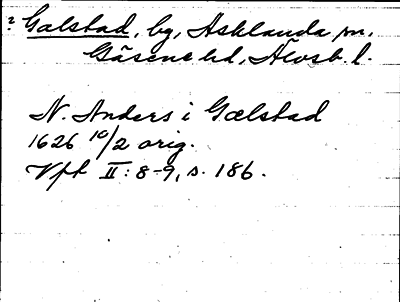 ? Galstad, by, Asklanda sn,
Gäsene hd, Älvsb. l.
N. Anders i Gælstad
1626 10/2 orig.
Vpt II: 8-9, s. 186.